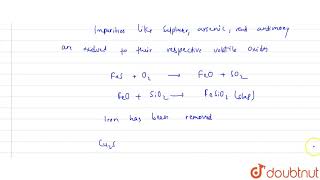 Impurities like Sulphur, arsenic, and antimony
are reduced to their respective volatile oxides
FeS + O2 → FeO + SO2
FeO + SiO2 → FeSiO2 (slag)
Iron has been removed
Cu2S
doubtnut